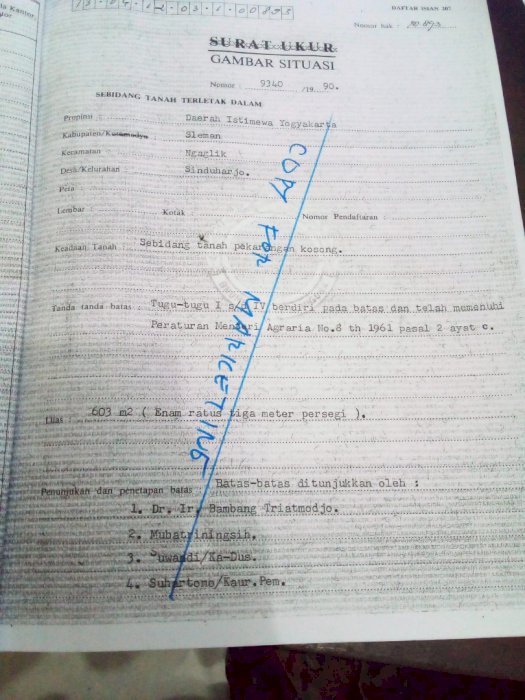 13.04.12.03.1.00893
DAFTAR ISIAN 207
Nomor hak :
SURAT UKUR
GAMBAR SITUASI
Nomor : 9340 /19 90.
SEBIDANG TANAH TERLETAK DALAM
Propinsi : Daerah Istimewa Yogyakarta
Kabupaten/Kotamadya Sleman
Kecamatan Ngaglik
Desa/Kelurahan : Sinduharjo.
Peta :
Lembar : Kotak Nomor Pendaftaran :
Keadaan Tanah : Sebidang tanah pekarangan kosong.
Tanda tanda batas : Tugu-tugu I s/d IV berdiri pada batas dan telah memenuhi
Peraturan Menteri Agraria No.8 th 1961 pasal 2 ayat c.
Luas : 603 m2 ( Enam ratus tiga meter persegi ).
Penunjukan dan penetapan batas : Batas-batas ditunjukkan oleh :
1. Dr. Ir. Bambang Triatmodjo.
2. Mubatriningsih.
3. Suwandi/Ka-Dus.
4. Suhartono/Kaur.Pem.
COPY FOR MARKETING